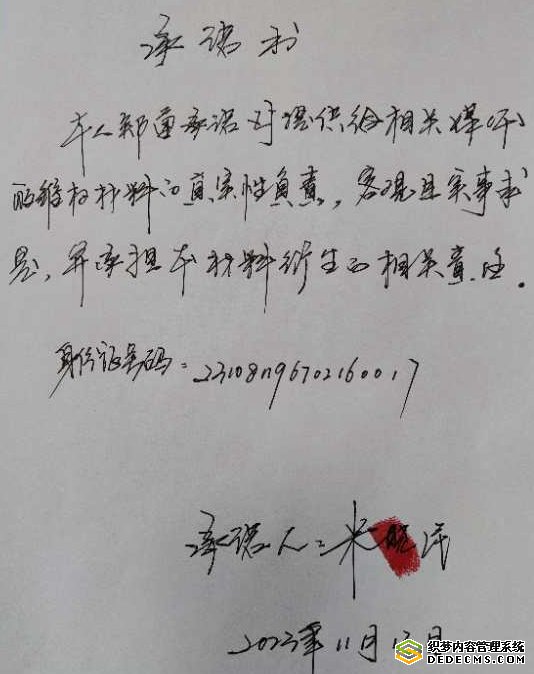 承诺书
本人郑重承诺对提供给相关媒体
的维权材料的真实性负责，客观且实事求
是，并承担本材料衍生的相关责任。
身份证号码：231081196702160017
承诺人：朱晓民
2023年11月13日
织梦内容管理系统
DEDECMS.COM